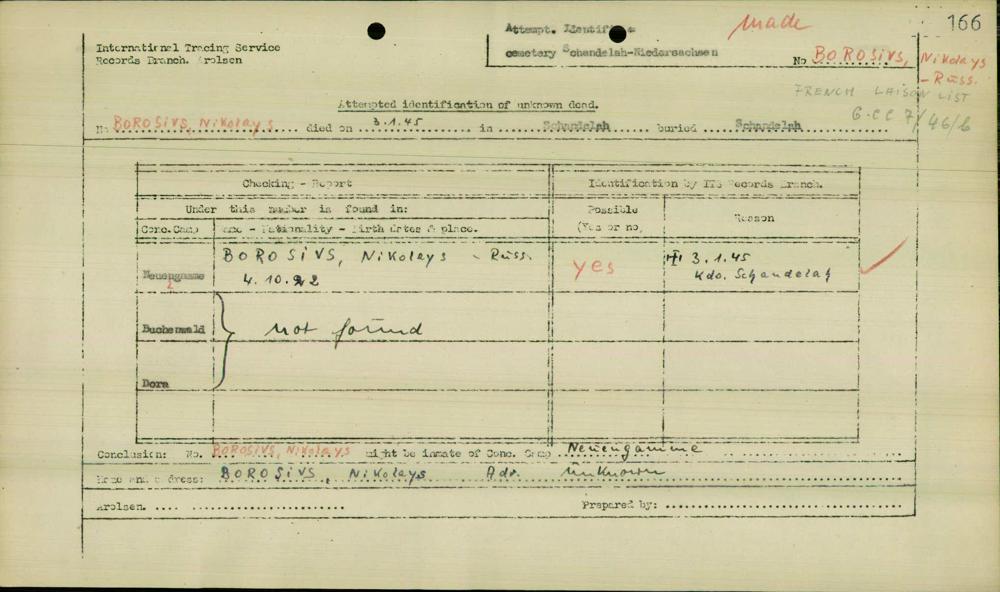 166
made
Attempt. Identif
cemetery Schandelah-Niedersachsen
International Tracing Service
Records Branch. Arolsen
No BOROSIVS, Nikolays
- Russ.
FRENCH LAISON LIST
G.CC 7/46/6
Attempted identification of unknown dead.
No BOROSIVS, Nikolays died on 3.1.45 in Schandelah buried Schandelah
Checking - Report
Identification by ITS Records Branch.
Under this number is found in:
Possible
(Yes or no,
Reason
Conc.Camp
ame - Nationality - Birth dates & place.
Neuengamme
BOROSIVS, Nikolays - Russ.
4.10.22
yes
3.1.45
Kdo. Schandelah
Buchenwald
not found
Dora
Conclusion: No. BOROSIVS, Nikolays might be inmate of Conc. Camp Neuengamme
Name and address: BOROSIVS, Nikolays Adr. unknown
Arolsen.
Prepared by: